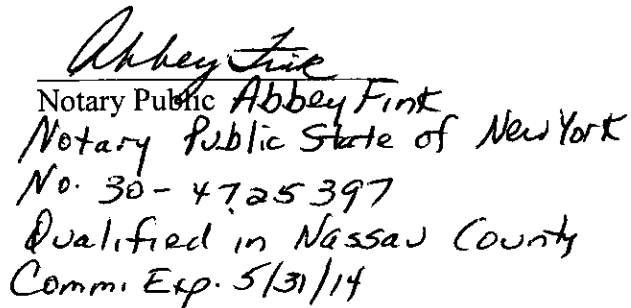 Abbey Fink
Notary Public Abbey Fink
Notary Public State of New York
No. 30-4725397
Qualified in Nassau County
Comm. Exp. 5/31/14